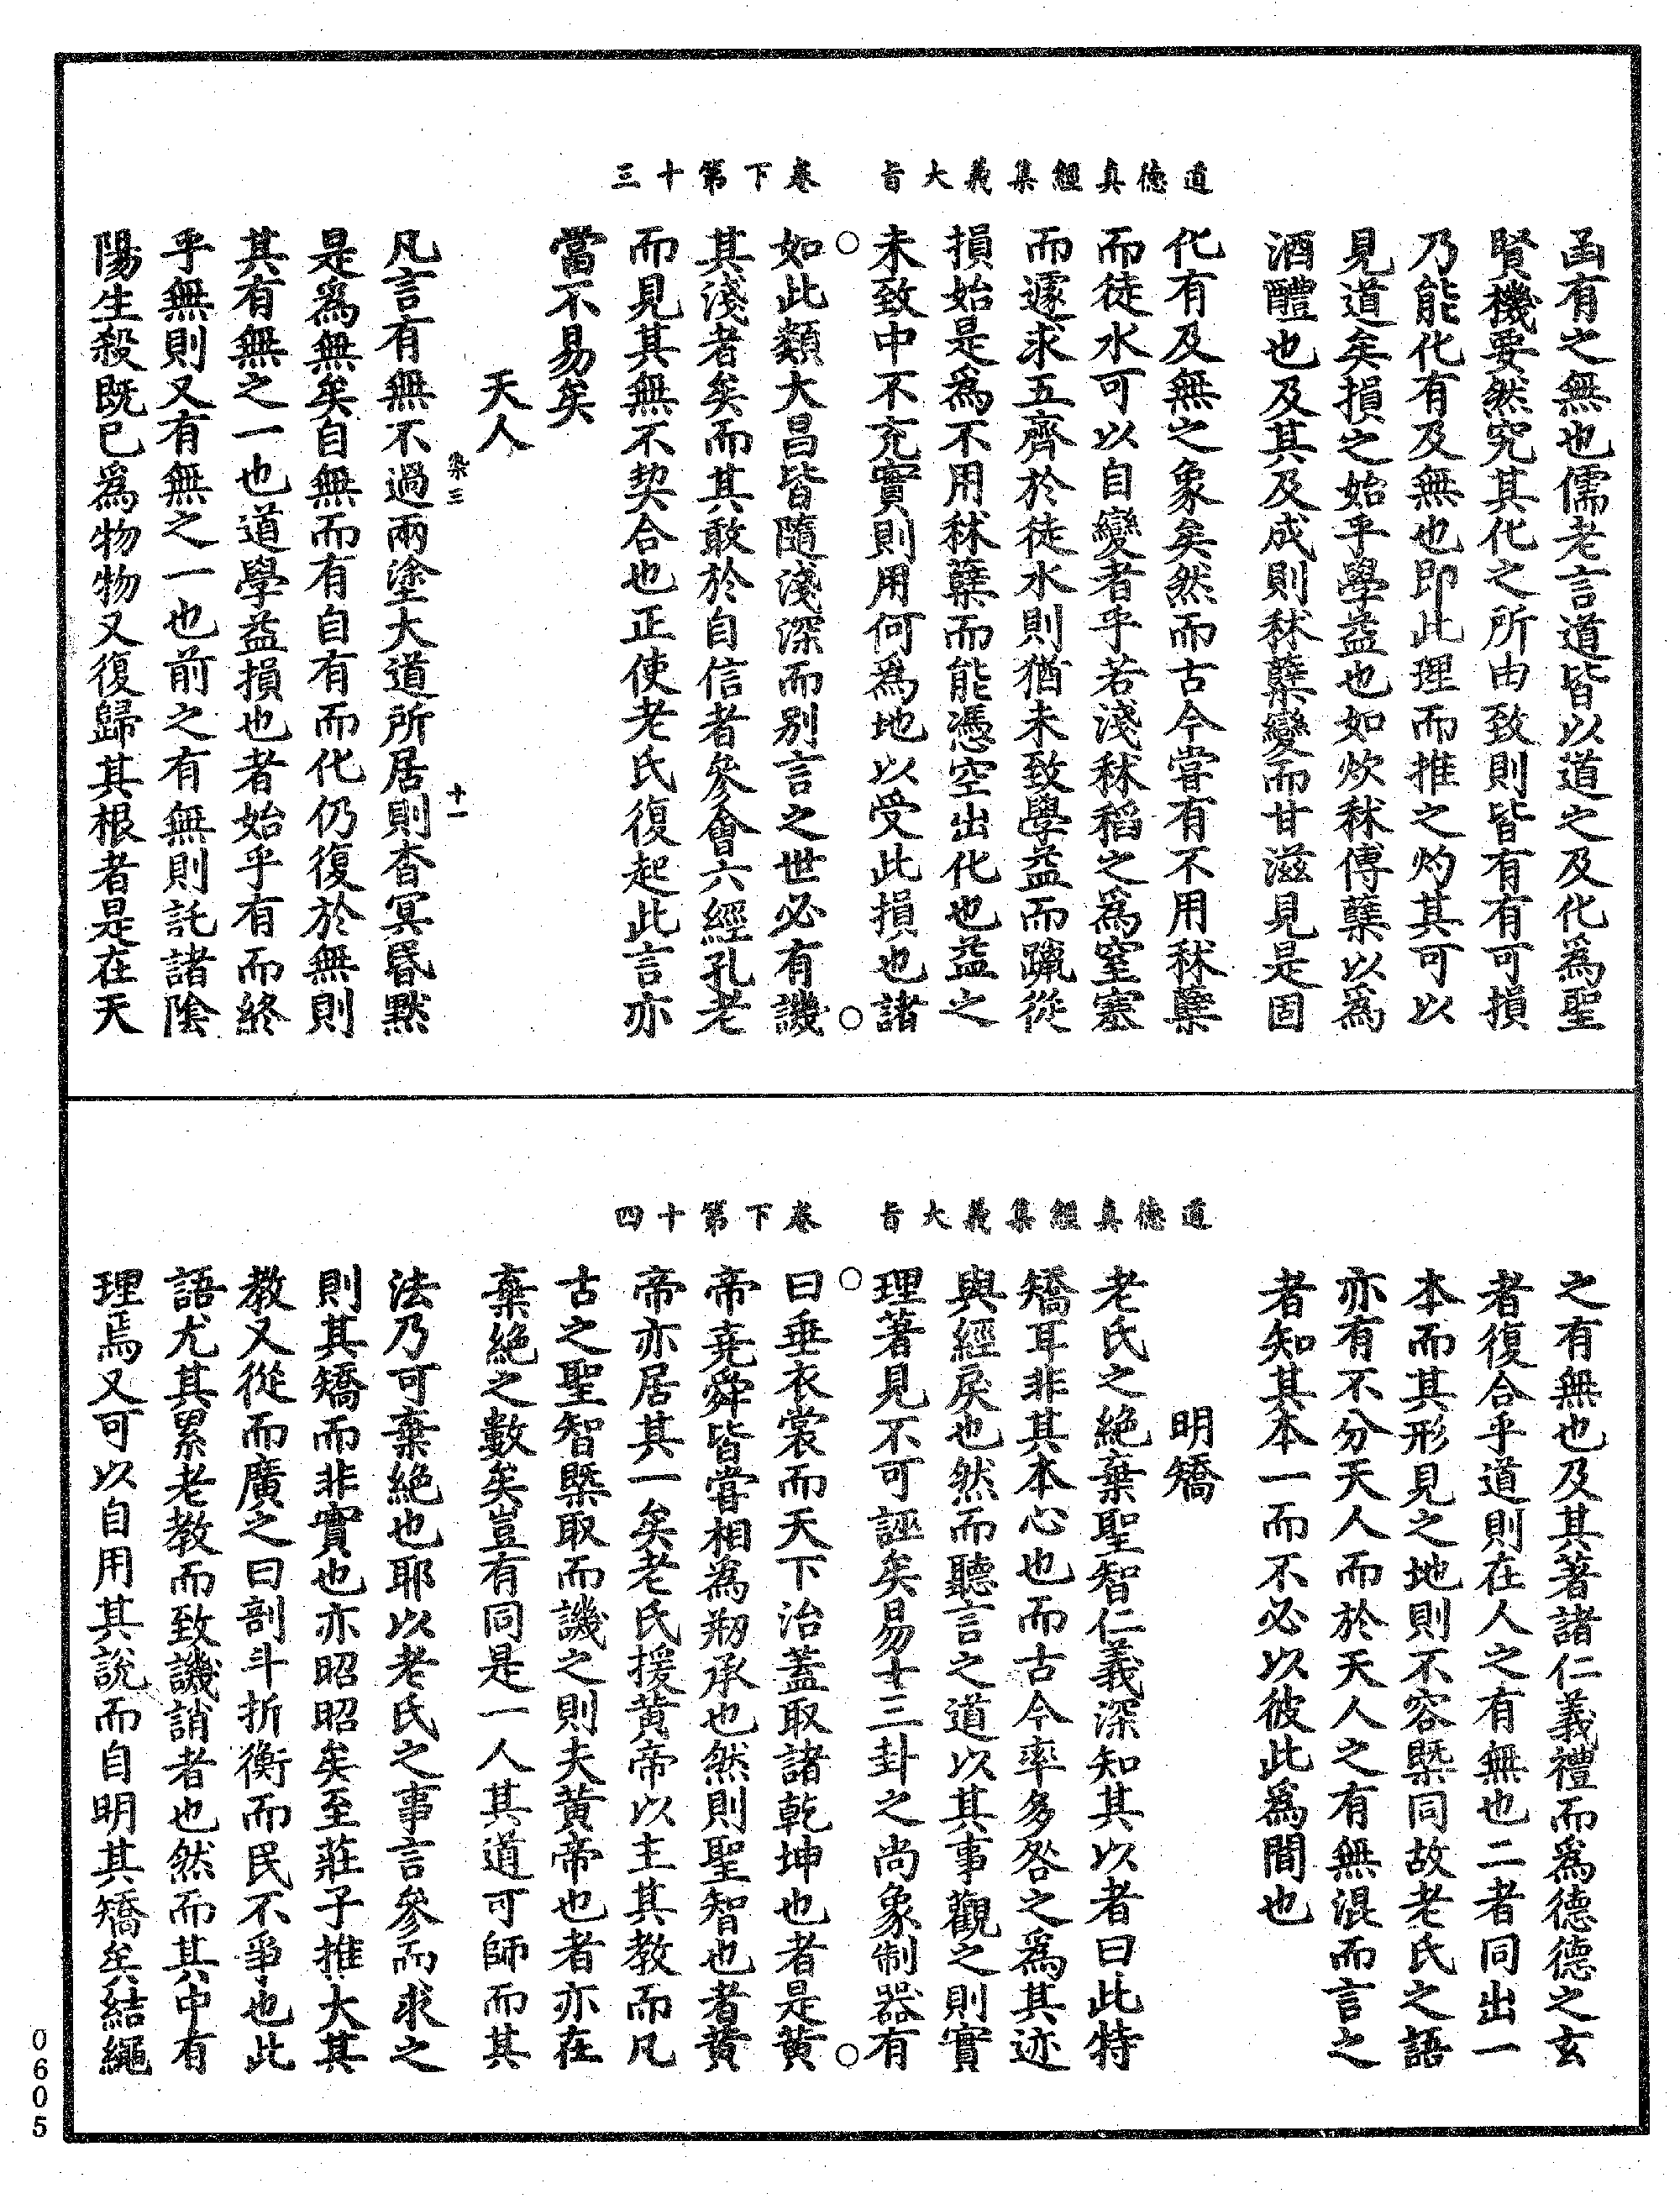 道德真經集義大旨　卷下第十三
函有之無也儒老言道皆以道之及化為聖
賢機要然究其化之所由致則皆有有可損
乃能化有及無也即此理而推之灼其可以
見道矣損之始乎學益也如炊秫傅糵以為
酒醴也及其及成則秫糵變而甘滋見是固
化有及無之象矣然而古今嘗有不用秫糵
而徒水可以自變者乎若淺秫稻之為窒塞
而遽求五齊於徒水則猶未致學益而躐從
損始是為不用秫糵而能憑空出化也益之
未致中不充實則用何為地以受此損也諸
○　○
如此類大昌皆隨淺深而別言之世必有譏
其淺者矣而其敢於自信者參會六經孔老
而見其無不契合也正使老氏復起此言亦
當不易矣
天人
集三　十一
凡言有無不過兩塗大道所居則杳冥昏默
是為無矣自無而有自有而化仍復於無則
其有無之一也道學益損也者始乎有而終
乎無則又有無之一也前之有無則託諸陰
陽生殺既已為物物又復歸其根者是在天
道德真經集義大旨　卷下第十四
之有無也及其著諸仁義禮而為德德之玄
者復合乎道則在人之有無也二者同出一
本而其形見之地則不容槩同故老氏之語
亦有不分天人而於天人之有無混而言之
者知其本一而不必以彼此為間也
明矯
老氏之絕棄聖智仁義深知其以者曰此特
矯耳非其本心也而古今率多咎之為其迹
與經戾也然而聽言之道以其事觀之則實
理著見不可誣矣易十三卦之尚象制器有
○　○
曰垂衣裳而天下治蓋取諸乾坤也者是黃
帝堯舜皆嘗相為剏承也然則聖智也者黃
帝亦居其一矣老氏援黃帝以主其教而凡
古之聖智槩取而譏之則夫黃帝也者亦在
棄絕之數矣豈有同是一人其道可師而其
法乃可棄絕也耶以老氏之事言參而求之
則其矯而非實也亦昭昭矣至莊子推大其
教又從而廣之曰剖斗折衡而民不爭也此
語尤其累老教而致譏誚者也然而其中有
理焉又可以自用其說而自明其矯矣結繩
0605